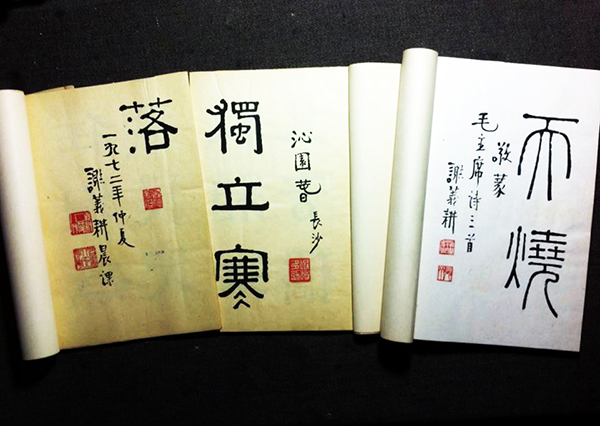 天燒
敬篆
毛主席诗三首
謝義耕
沁園春 長沙
獨立寒
落
一九七二年仲夏
謝義耕晨课